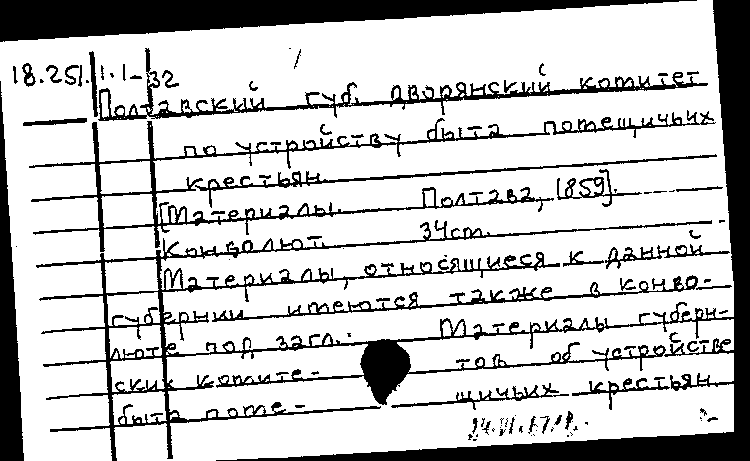 18.251.1.1-32
Полтавский губ. дворянский комитет
по устройству быта помещичьих
крестьян.
[Материалы. Полтава, 1859].
Конволют. 34 cm.
Материалы, относящиеся к данной
губернии имеются также в конво-
люте под загл.: Материалы губерн-
ских комите- тов об устройстве
быта поме- щичьих крестьян.